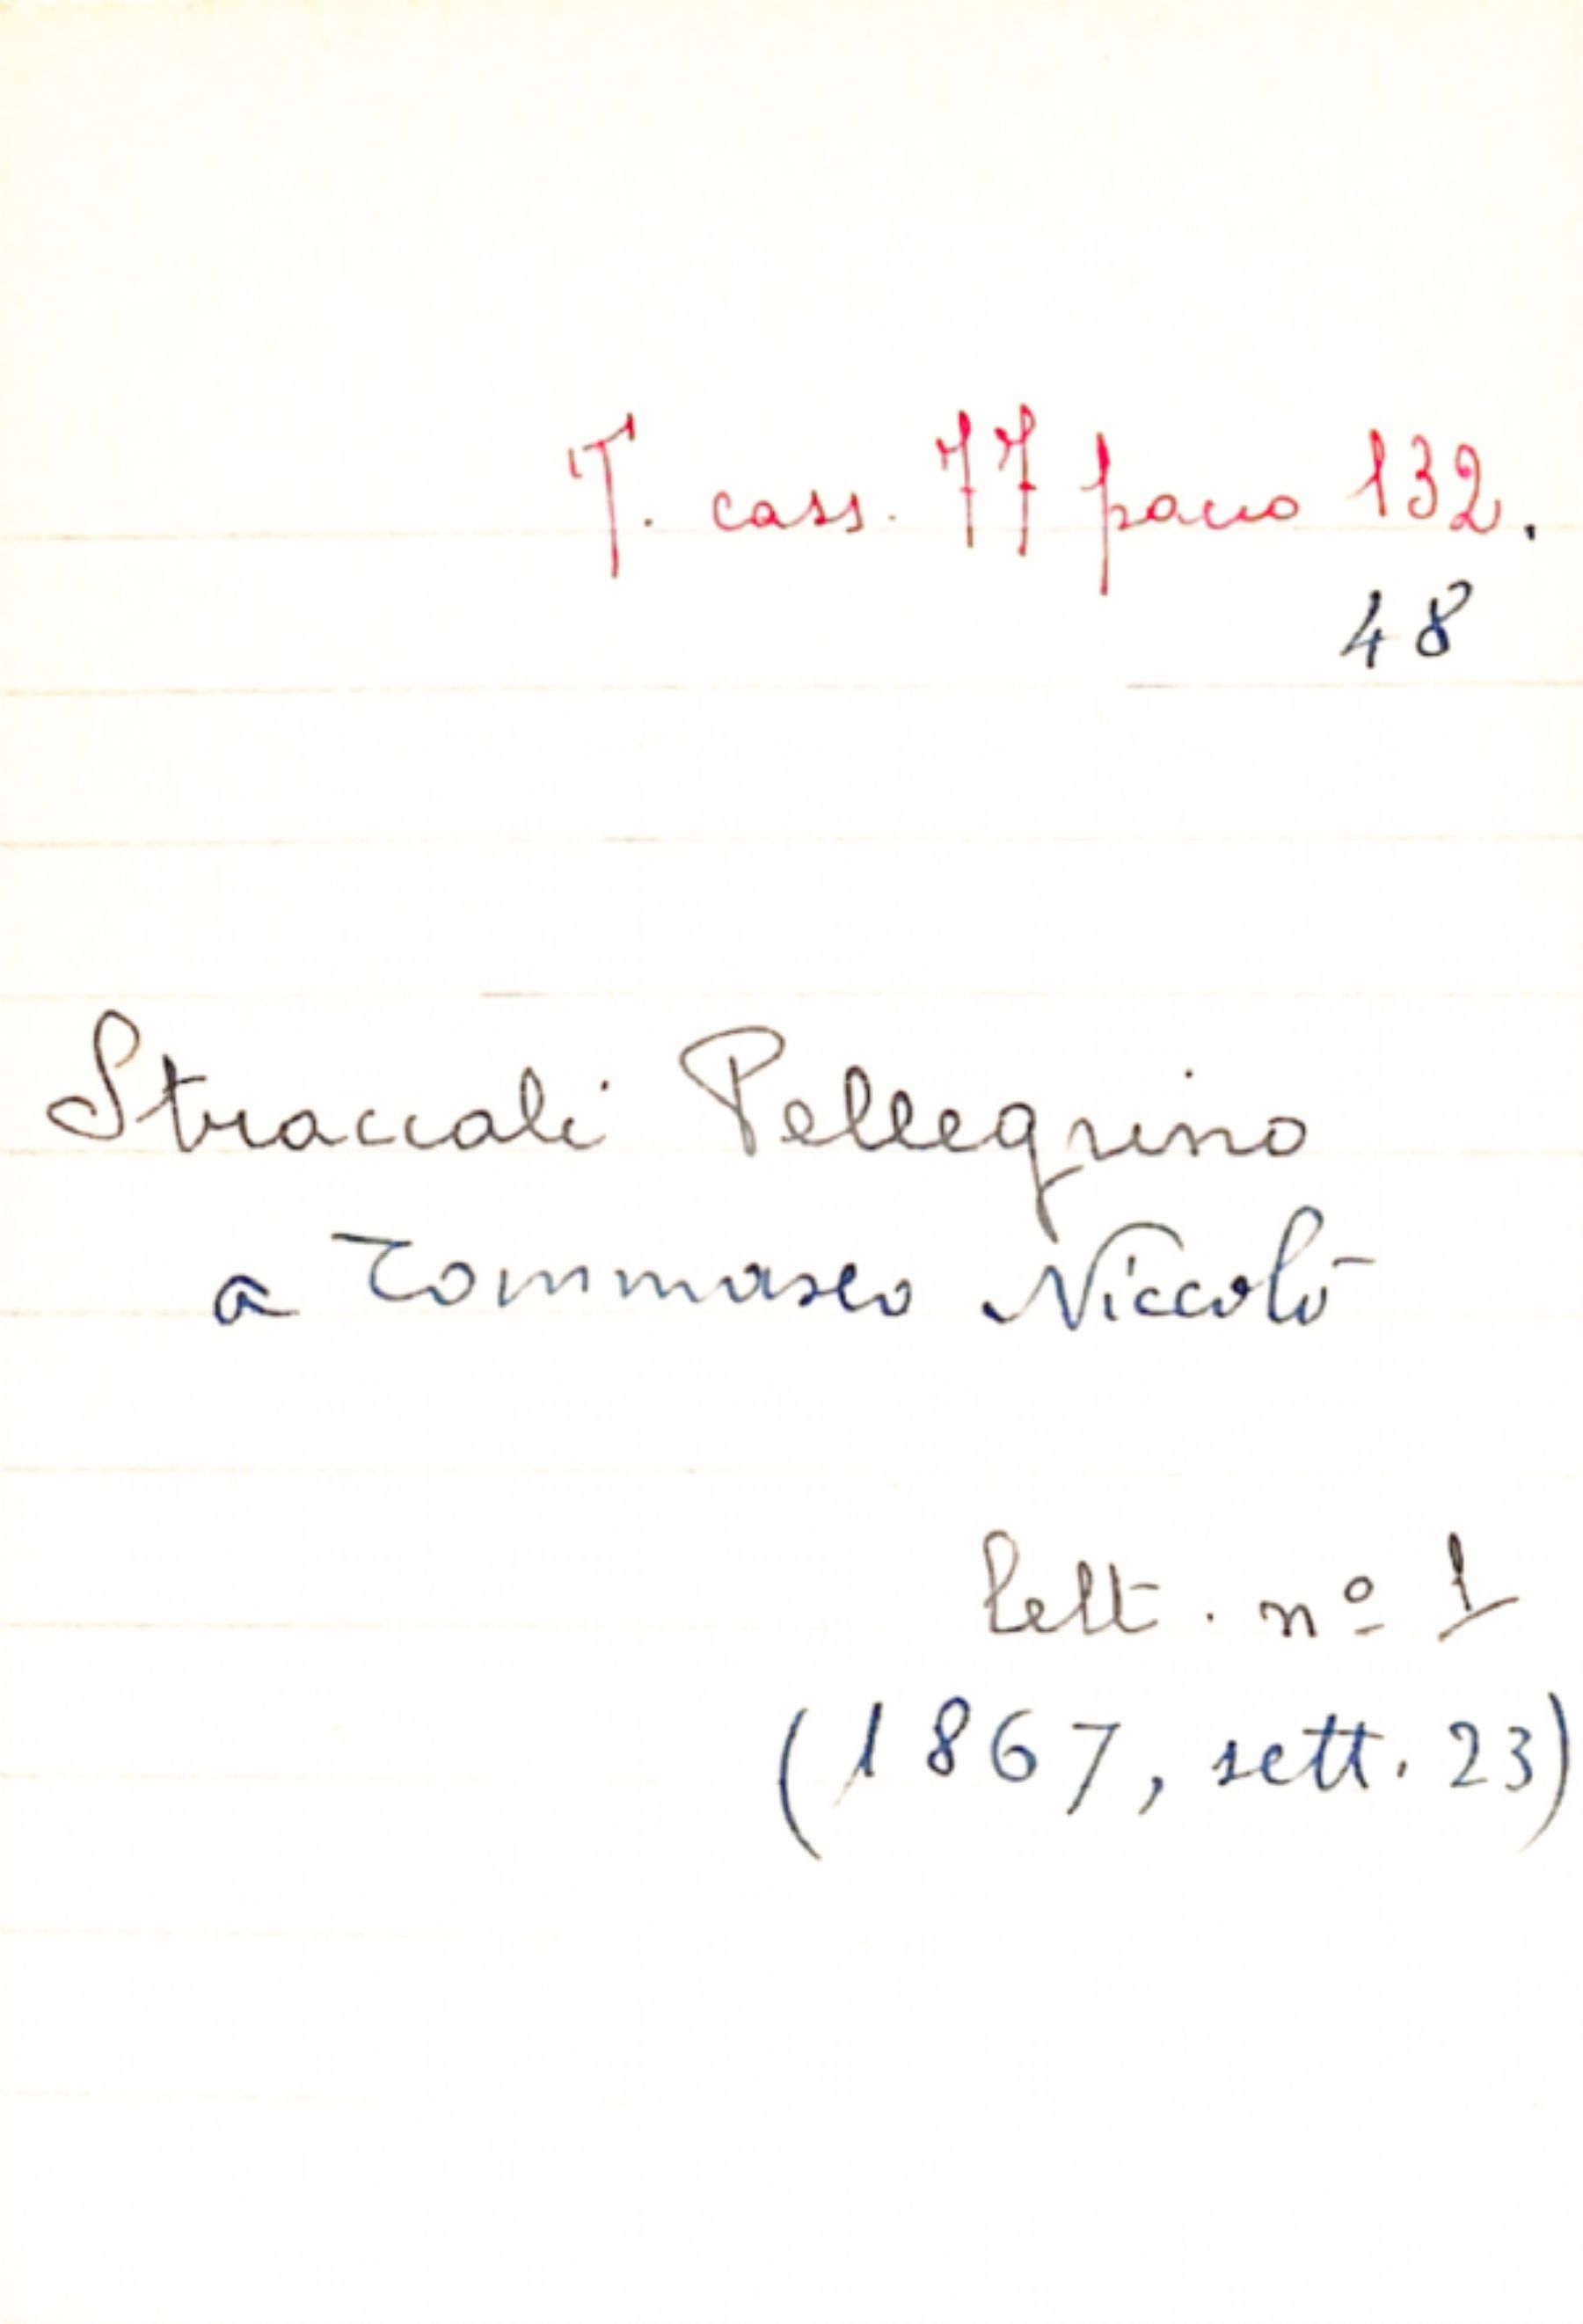 T. cass. 77 pacco 132.
48
Straccali Pellegrino
a Tommaseo Niccolò
lett. nº 1
(1867, sett. 23)